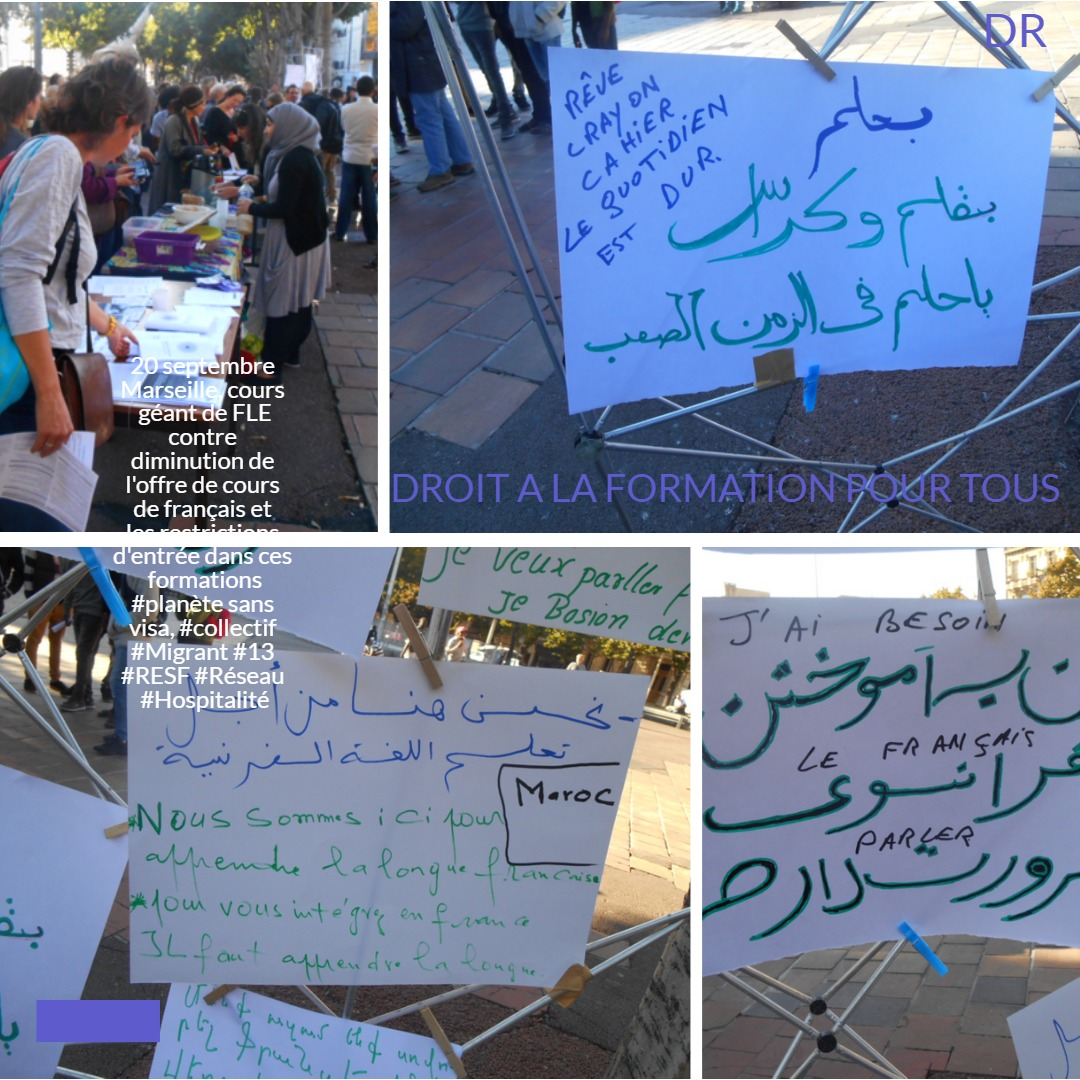 DR
RÊVE
CRAYON
CAHIER
LE QUOTIDIEN
EST DUR.
بحلم
بقلم وكراس
باحلم فى الزمن الصعب
DROIT A LA FORMATION POUR TOUS
20 septembre
Marseille, cours
géant de FLE
contre
diminution de
l'offre de cours
de français et
les restrictions
d'entrée dans ces
formations
#planète sans
visa, #collectif
#Migrant #13
#RESF #Réseau
#Hospitalité
je veux parller
Je Bosion
- نحـن هنـا من أجل
تعلـم اللغـة الـفرنسية
Maroc
*Nous sommes ici pour
apprendre la longue francaise
*pour vous intégrez en france
IL faut apprendre la longue.
J'Ai BESOIN
به آموختن
LE FRANÇAIS
فرانسوی
PARLER